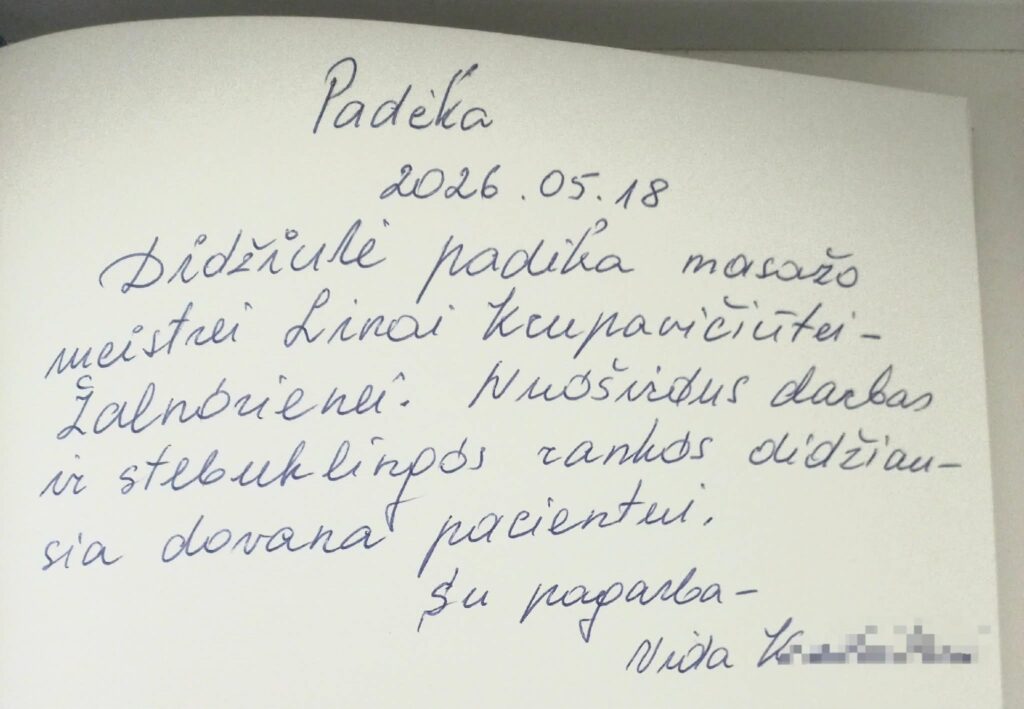 Padėka
2026.05.18
Didžiulė padėka masažo
meistrei Linai Krupavičiūtei-
Žalnorienei. Nuoširdus darbas
ir stebuklingos rankos didžiau-
sia dovana pacientui.
Su pagarba-
Vida